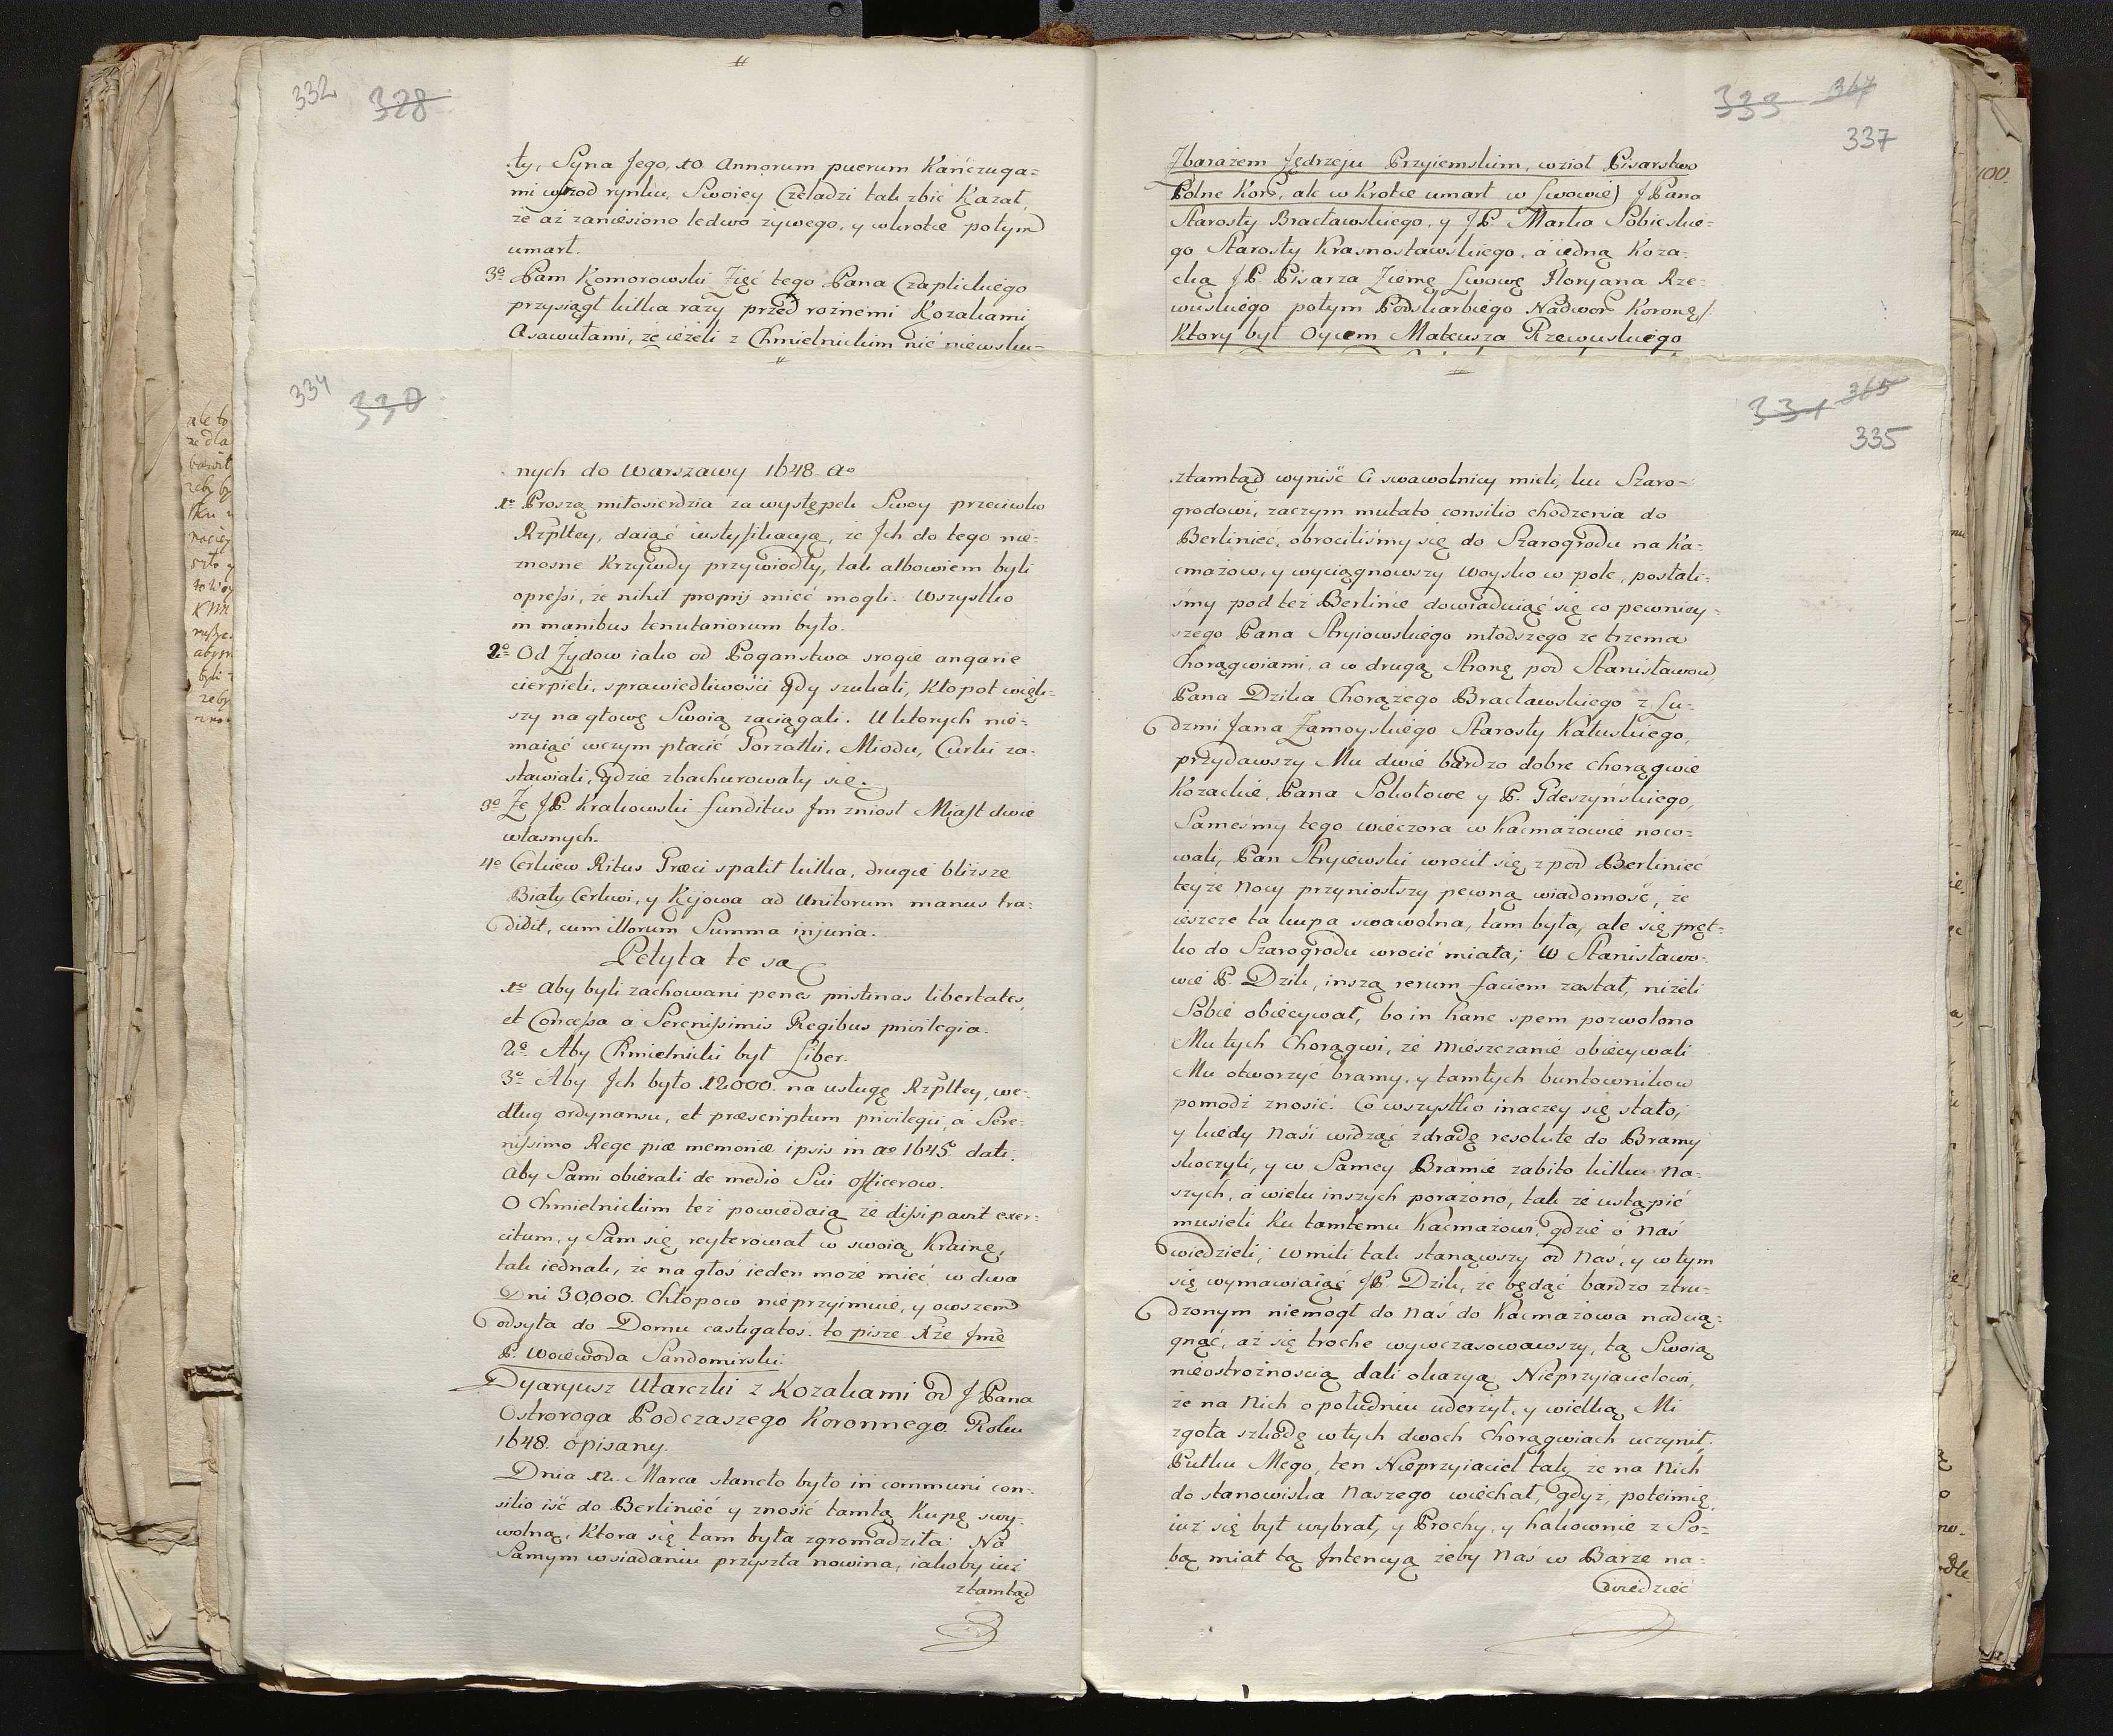 332 328
ty, Syna Jego, 10 Annorum puerum Kańczuga=
mi wśrod rynku, Swoiey Czeladzi tak zbić Kazał,
że aż zaniesiono ledwo żywego, y wkrotce potym
umarł.
3o Pam Komorowski Zięć tego Pana Czaplickiego
przysiągł kilka razy przed roznemi Kozakami
Asawułami, że ieżeli z Chmielnickim nić niewsku=
334 330
nych do Warszawy 1648 ao
1o Proszą miłosierdzia za występek Swoy przeciwko
Rzpltey, daiąć iustyfikacyą, że Ich do tego nie=
znosne Krzywdy przywiodły, tak albowiem byli
opressi, że nihil proprij mieć mogli. Wszystko
in manibus tenutariorum było.
2o Od Zydow iako od Poganstwa srogie angarie
cierpieli, sprawiedliwości gdy szukali, Kłopot więk=
szy na głowę Swoią zaciągali. U ktorych nie=
maiąć wczym płacić Gorzałki, Miodu, Curki za=
stawiali, gdzie zbachurowały się.
3o Ze JP. Krakowski funditus Im zniosł Miast dwie
własnych.
4o Cerkiew Ritus Græci spalił kilka, drugie bliższe
Biały Cerkwi, y Kijowa ad Unitorum manus tra=
didit, cum illorum Summa injuria.
Petyta te są
1o Aby byli zachowani penes pristinas libertates,
et Concessa á Serenissimis Regibus privilegia.
2o Aby Chmielnicki był Liber.
3o Aby Ich było 12000 na usługę Rzpltey, we=
dług ordynansu, et præscriptum privilegii, á Sere=
nissimo Rege piæ memoriæ ipsis in ao 1645 dati.
Aby Sami obierali de medio Sui officerow.
O Chmielnickim też powiedaią że dissipavit exer=
citum, y Sam się reyterował w swoią Krainę,
tak iednak, że na głoś ieden może mieć w dwa
Dni 30,000. Chłopow nieprzyimuie, y owszem
odsyła do Domu castigatos. to pisze Xże Jme
P. Woiewoda Sandomirski.
Dyaryusz Utarczki z Kozakami od J Pana
Ostroroga Podczaszego Koronnego Roku
1648. opisany.
Dnia 12. Marca stancto było in communi con=
silio iść do Berliniec y znosić tamtą Kupę swy=
wolną, Ktora się tam była zgromadziła: Na
Samym wsiadaniu przyszła nowina, iakoby iuż
ztamtąd
333 367
337
Zbarażem Jędrzeju Przyiemskim, wzioł Pisarstwo
Polne Kor, ale w Krotce umarł w Lwowie) J Pana
Starosty Bracławskiego, y JP. Marka Sobieskie=
go Starosty Krasnostawskiego, á iedną Koza=
cką JP. Pisarza Ziemę Lwowę Floryana Rze=
wuskiego potym Podskarbiego Nadwor Koronę/:
Ktory był Oycem Mateusza Rzewuskiego
331 365
335
ztamtąd wyniść Ci swawolnicy mieli, ku Szaro=
grodowi, zaczym mutato consilio chodzenia do
Berlinieć, obrociliśmy się do Szarogrodu na Ka=
cmażow, y wyciągnowszy Woysko w pole, posłali=
śmy pod też Berlince dowiaduiąć się co pewniey=
szego Pana Stryiowskiego młodszego ze trzema
Chorągwiami, a w drugą Stronę pod Stanisławow,
Pana Dzika Chorążego Bracławskiego z Lu=
dzmi Jana Zamoyskiego Starosty Kałuskiego,
przydawszy Mu dwie bardzo dobre Chorągwie
Kozackie, Pana Sokołowe y P. Gdeszyńskiego,
Sameśmy tego wieczora w Kacmażowie noco=
wali, Pan Stryiewski wrocił się z pod Berlinieć
teyże Nocy przyniosłszy pewną wiadomość, że
ieszcze ta kupa swawolna, tam była, ale się pręt=
ko do Szarogrodu wrocić miała; W Stanisławo=
wie P. Dzik, inszą rerum faciem zastał, niżeli
Sobie obiecywał, bo in hanc spem pozwolono
Mu tych Chorągwi, że Mieszczanie obiecywali
Mu otworzyć bramy, y tamtych buntownikow
pomodz znosić. Co wszystko inaczey się stało,
y kiedy Naśi widząć zdradę resolute do Bramy
skoczyli, y w Samey Bramie zabito kilku Na=
szych, á wielu inszych porażono, tak że ustąpić
musieli ku tamtemu Kacmażowi, gdzie o Naś
wiedzieli; w mili tak stanąwszy od Naś, y w tym
się wymawiaiąć JP. Dzik, że będąć bardzo ztru=
dzonym niemogł do Naś do Kacmażowa nadcią=
gnąć, aż się troche wywczasowawszy, tą Swoią
nieostrożnoscią dali okazyą Nieprzyiacielowi,
że na Nich o południu uderzył, y wielką Mi
zgoła szkodę w tych dwoch Chorągwiach uczynił.
Pułku Mego, ten Nieprzyiaciel tak, że na Nich
do stanowiska Naszego wiechał, gdyż, poteimię,
iuż się był wybrał, y Prochy, y hakownie z So=
bą miał tą Intencyą żeby Naś w Barze na=
wiedzieć